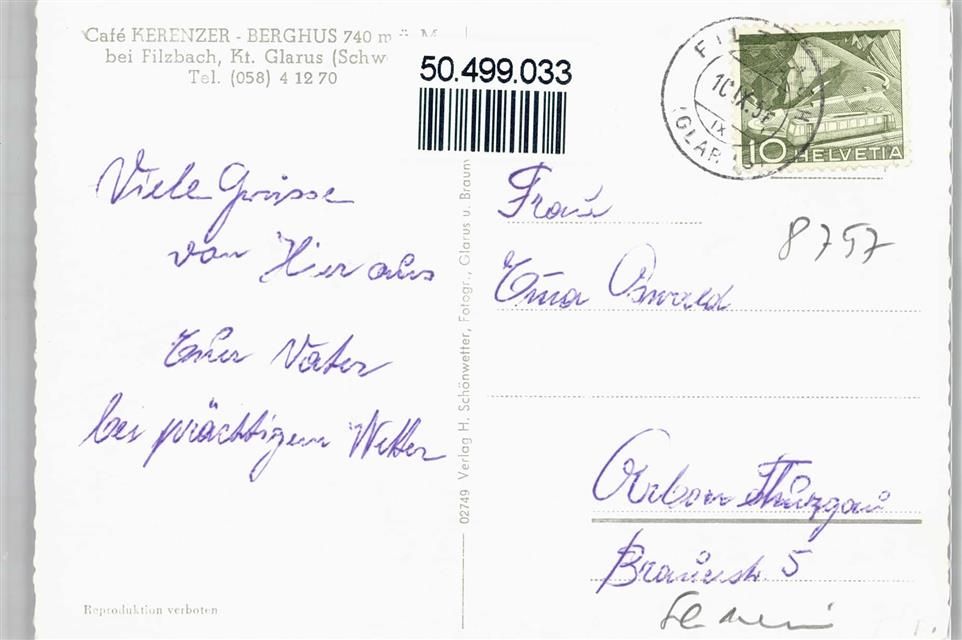 Café KERENZER - BERGHUS 740 m ü. M
bei Filzbach, Kt. Glarus (Schw
Tel. (058) 4 12 70
50.499.033
10 IX.
IX
10 HELVETIA
Viele Grüsse
von Hier aus
Euer Vater
bei prächtigem Wetter
02749 Verlag H. Schönwetter, Fotogr., Glarus u. Braunw
Frau
8757
Erna Oswald
Arbon Thurgau
Brauerstr. 5
Reproduktion verboten